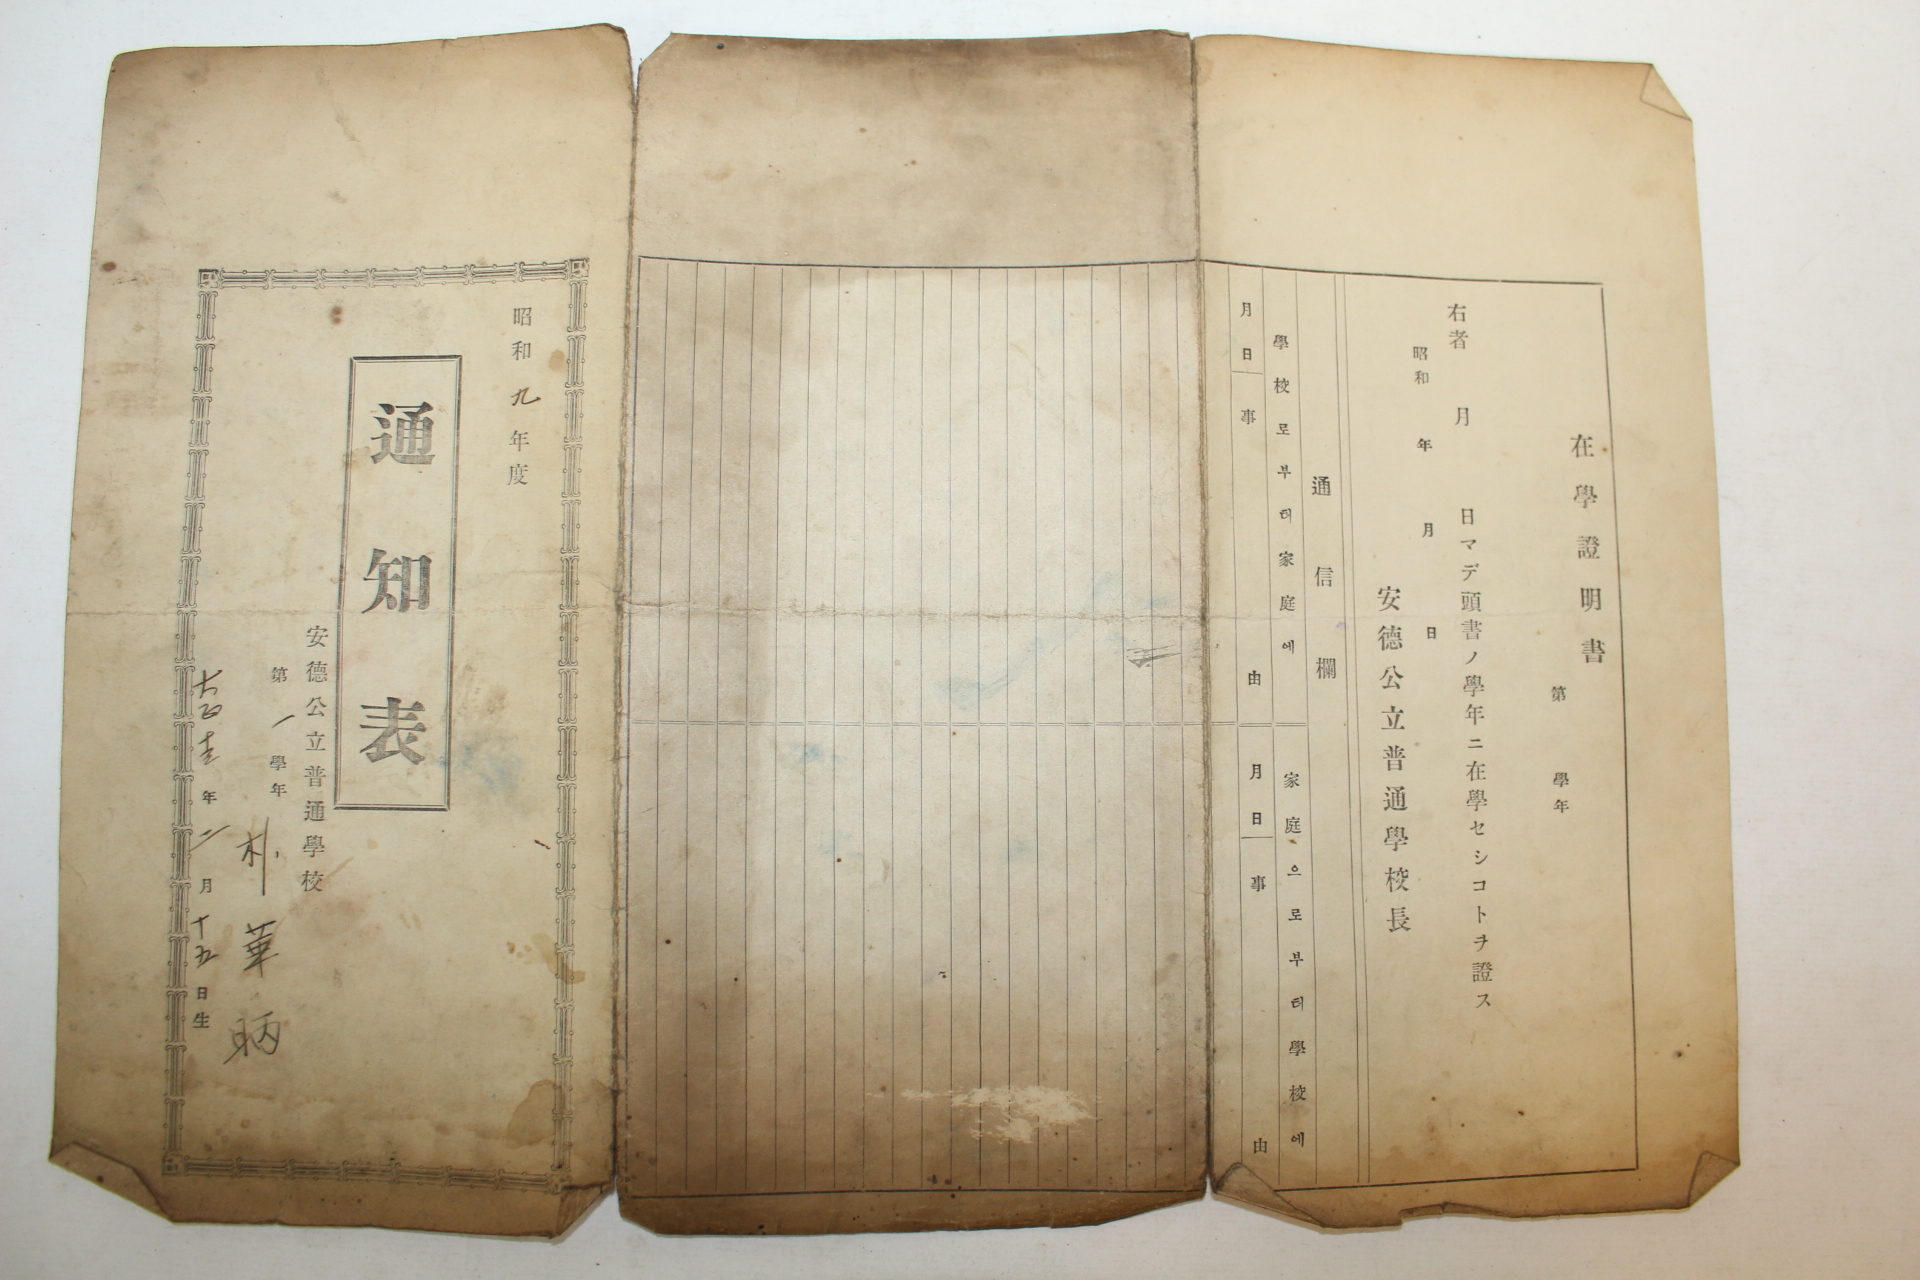 在學證明書
第 學年
右者 月 日マデ頭書ノ學年ニ在學セシコトヲ證ス
昭和 年 月 日
安德公立普通學校長
通信欄
學校로부터家庭에
月日 事由
家庭으로부터學校에
月日 事由
昭和九年度
通知表
安德公立普通學校
第一學年
朴華昞
年二月十五日生